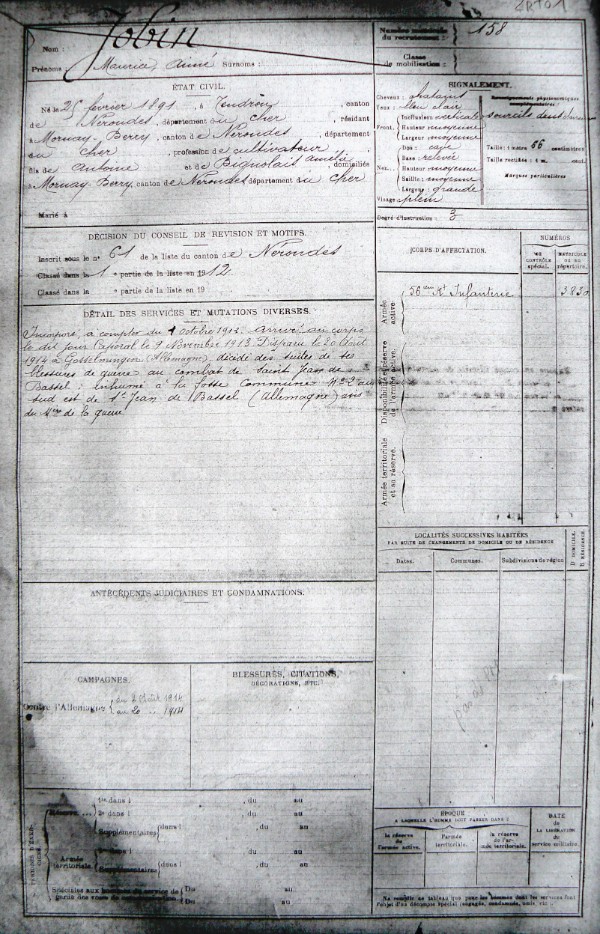 Jobin
Nom :
Prénoms : Maurice, Aimé Surnoms :
Numéro matricule
du recrutement : 158
Classe
de mobilisation :
ÉTAT CIVIL.
Né le 25 février 1891, à , canton
de Nérondes, département du Cher, résidant
à Mornay-Berry, canton de Nérondes, département
du Cher, profession de cultivateur,
fils de Antoine et de domiciliés
à Mornay-Berry, canton de Nérondes département du Cher
Marié à
SIGNALEMENT.
Cheveux : châtains
Yeux : bleu clair
Front. Inclinaison verticale
Hauteur moyenne
Largeur moyenne
Nez. Dos :
Base : relevée
Hauteur moyenne
Saillie moyenne
Largeur grande
Visage plein
Renseignements physionomiques
complémentaires :
sourcils
Taille : 1 mètre 66 centimètres
Taille rectifiée : 1 m. cent.
Marques particulières
Degré d'instruction : 3
DÉCISION DU CONSEIL DE RÉVISION ET MOTIFS.
Inscrit sous le n° 61 de la liste du canton de Nérondes
Classé dans la 1e partie de la liste en 1912
Classé dans la e partie de la liste en 19
CORPS D'AFFECTATION.
NUMÉROS
au contrôle spécial.
matricule ou au répertoire.
Armée active.
56ème Rt Infanterie
DÉTAIL DES SERVICES ET MUTATIONS DIVERSES.
Incorporé à compter du octobre 1912. Arrivé au corps
le dit jour Caporal le 9 Novembre 1913. Disparu le 20 Août
1914 à Gosselmingen (Allemagne), décédé des suites de ses
blessures de guerre au combat de Saint Jean de
Bassel : inhumé à la Fosse Commune N° 2 au
sud est de St Jean de Bassel (Allemagne) avis
du Mre de la guerre
Disponibilité et réserve
de l'armée active
Armée territoriale
et sa réserve.
LOCALITÉS SUCCESSIVES HABITÉES
PAR SUITE DE CHANGEMENTS DE DOMICILE OU DE RÉSIDENCE
Dates.
Communes.
Subdivisions de région
D DOMICILE.
R RÉSIDENCE.
ANTÉCÉDENTS JUDICIAIRES ET CONDAMNATIONS.
CAMPAGNES.
Contre l'Allemagne du 2 Août 1914
au 20 .. 1914
BLESSURES, CITATIONS,
DÉCORATIONS, ETC.
Réserve...
1re dans l , du au
2e dans l , du au
Supplémentaires dans l , du au
Armée
territoriale
1re dans l , du au
Supplémentaires dans l , du au
Spéciales aux hommes du service de
Du au
Du au
ÉPOQUE
À LAQUELLE L'HOMME DOIT PASSER DANS :
la réserve
de l'armée active.
l'armée
territoriale.
la réserve
de l'armée territoriale.
DATE
de
LA LIBÉRATION
du
service militaire.
Ne remplir ce tableau que pour les hommes dont les services font
l'objet d'un décompte spécial (engagés, condamnés, omis, etc.)